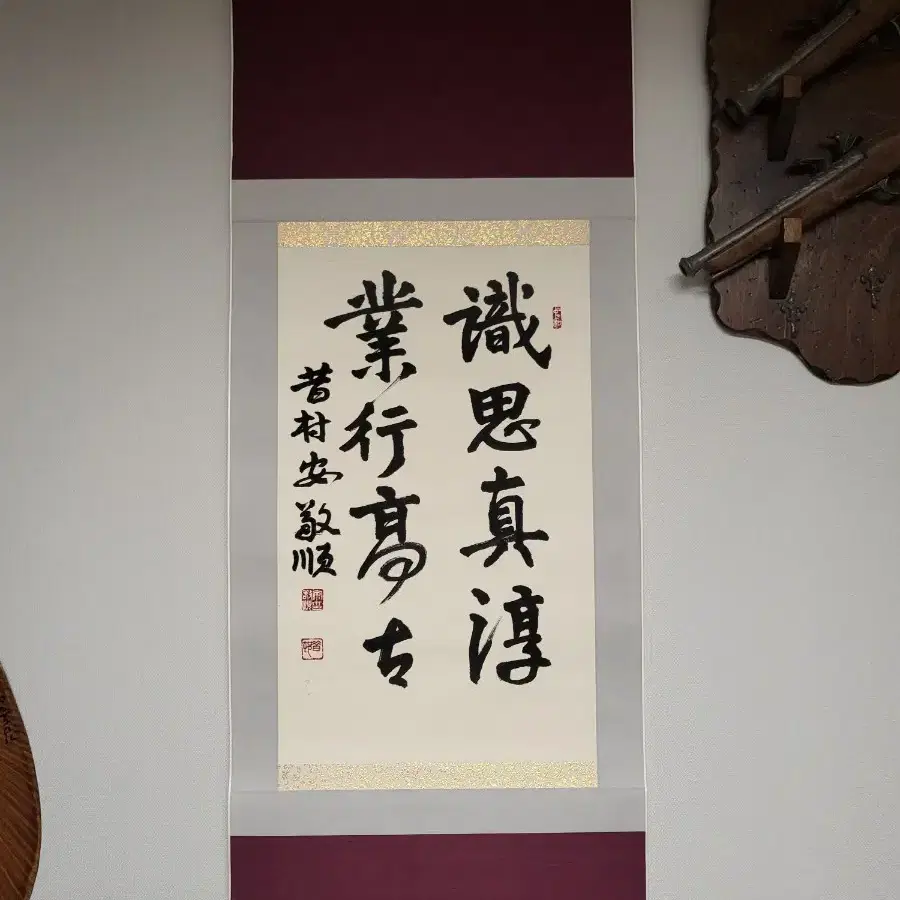 識思真淳
業行高古
昔村安敬順